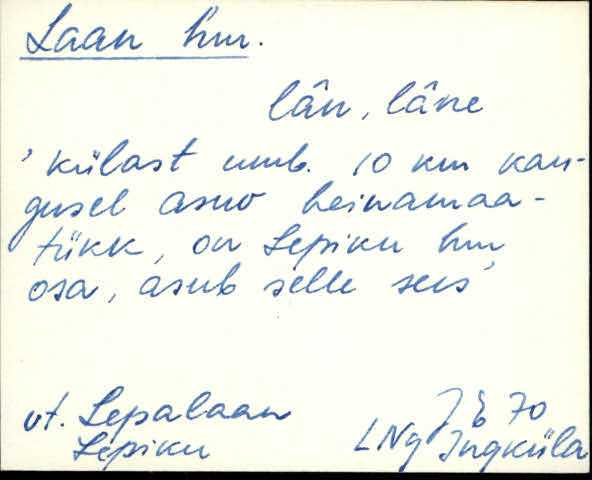 Laan hm.
lân, lâne
'külast umb. 10 km kau-
gusel asuv heinamaa-
tükk, on Lepiku hm
osa, asub selle sees'
vt. Lepalaan
Lepiku
70
LNg Jngküla